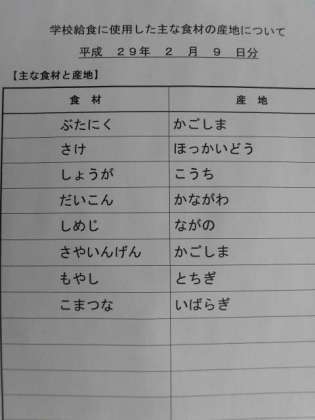 学校給食に使用した主な食材の産地について
平成 29年 2 月 9 日分
【主な食材と産地】
食 材 産 地
ぶたにく かごしま
さけ ほっかいどう
しょうが こうち
だいこん かながわ
しめじ ながの
さやいんげん かごしま
もやし とちぎ
こまつな いばらぎ